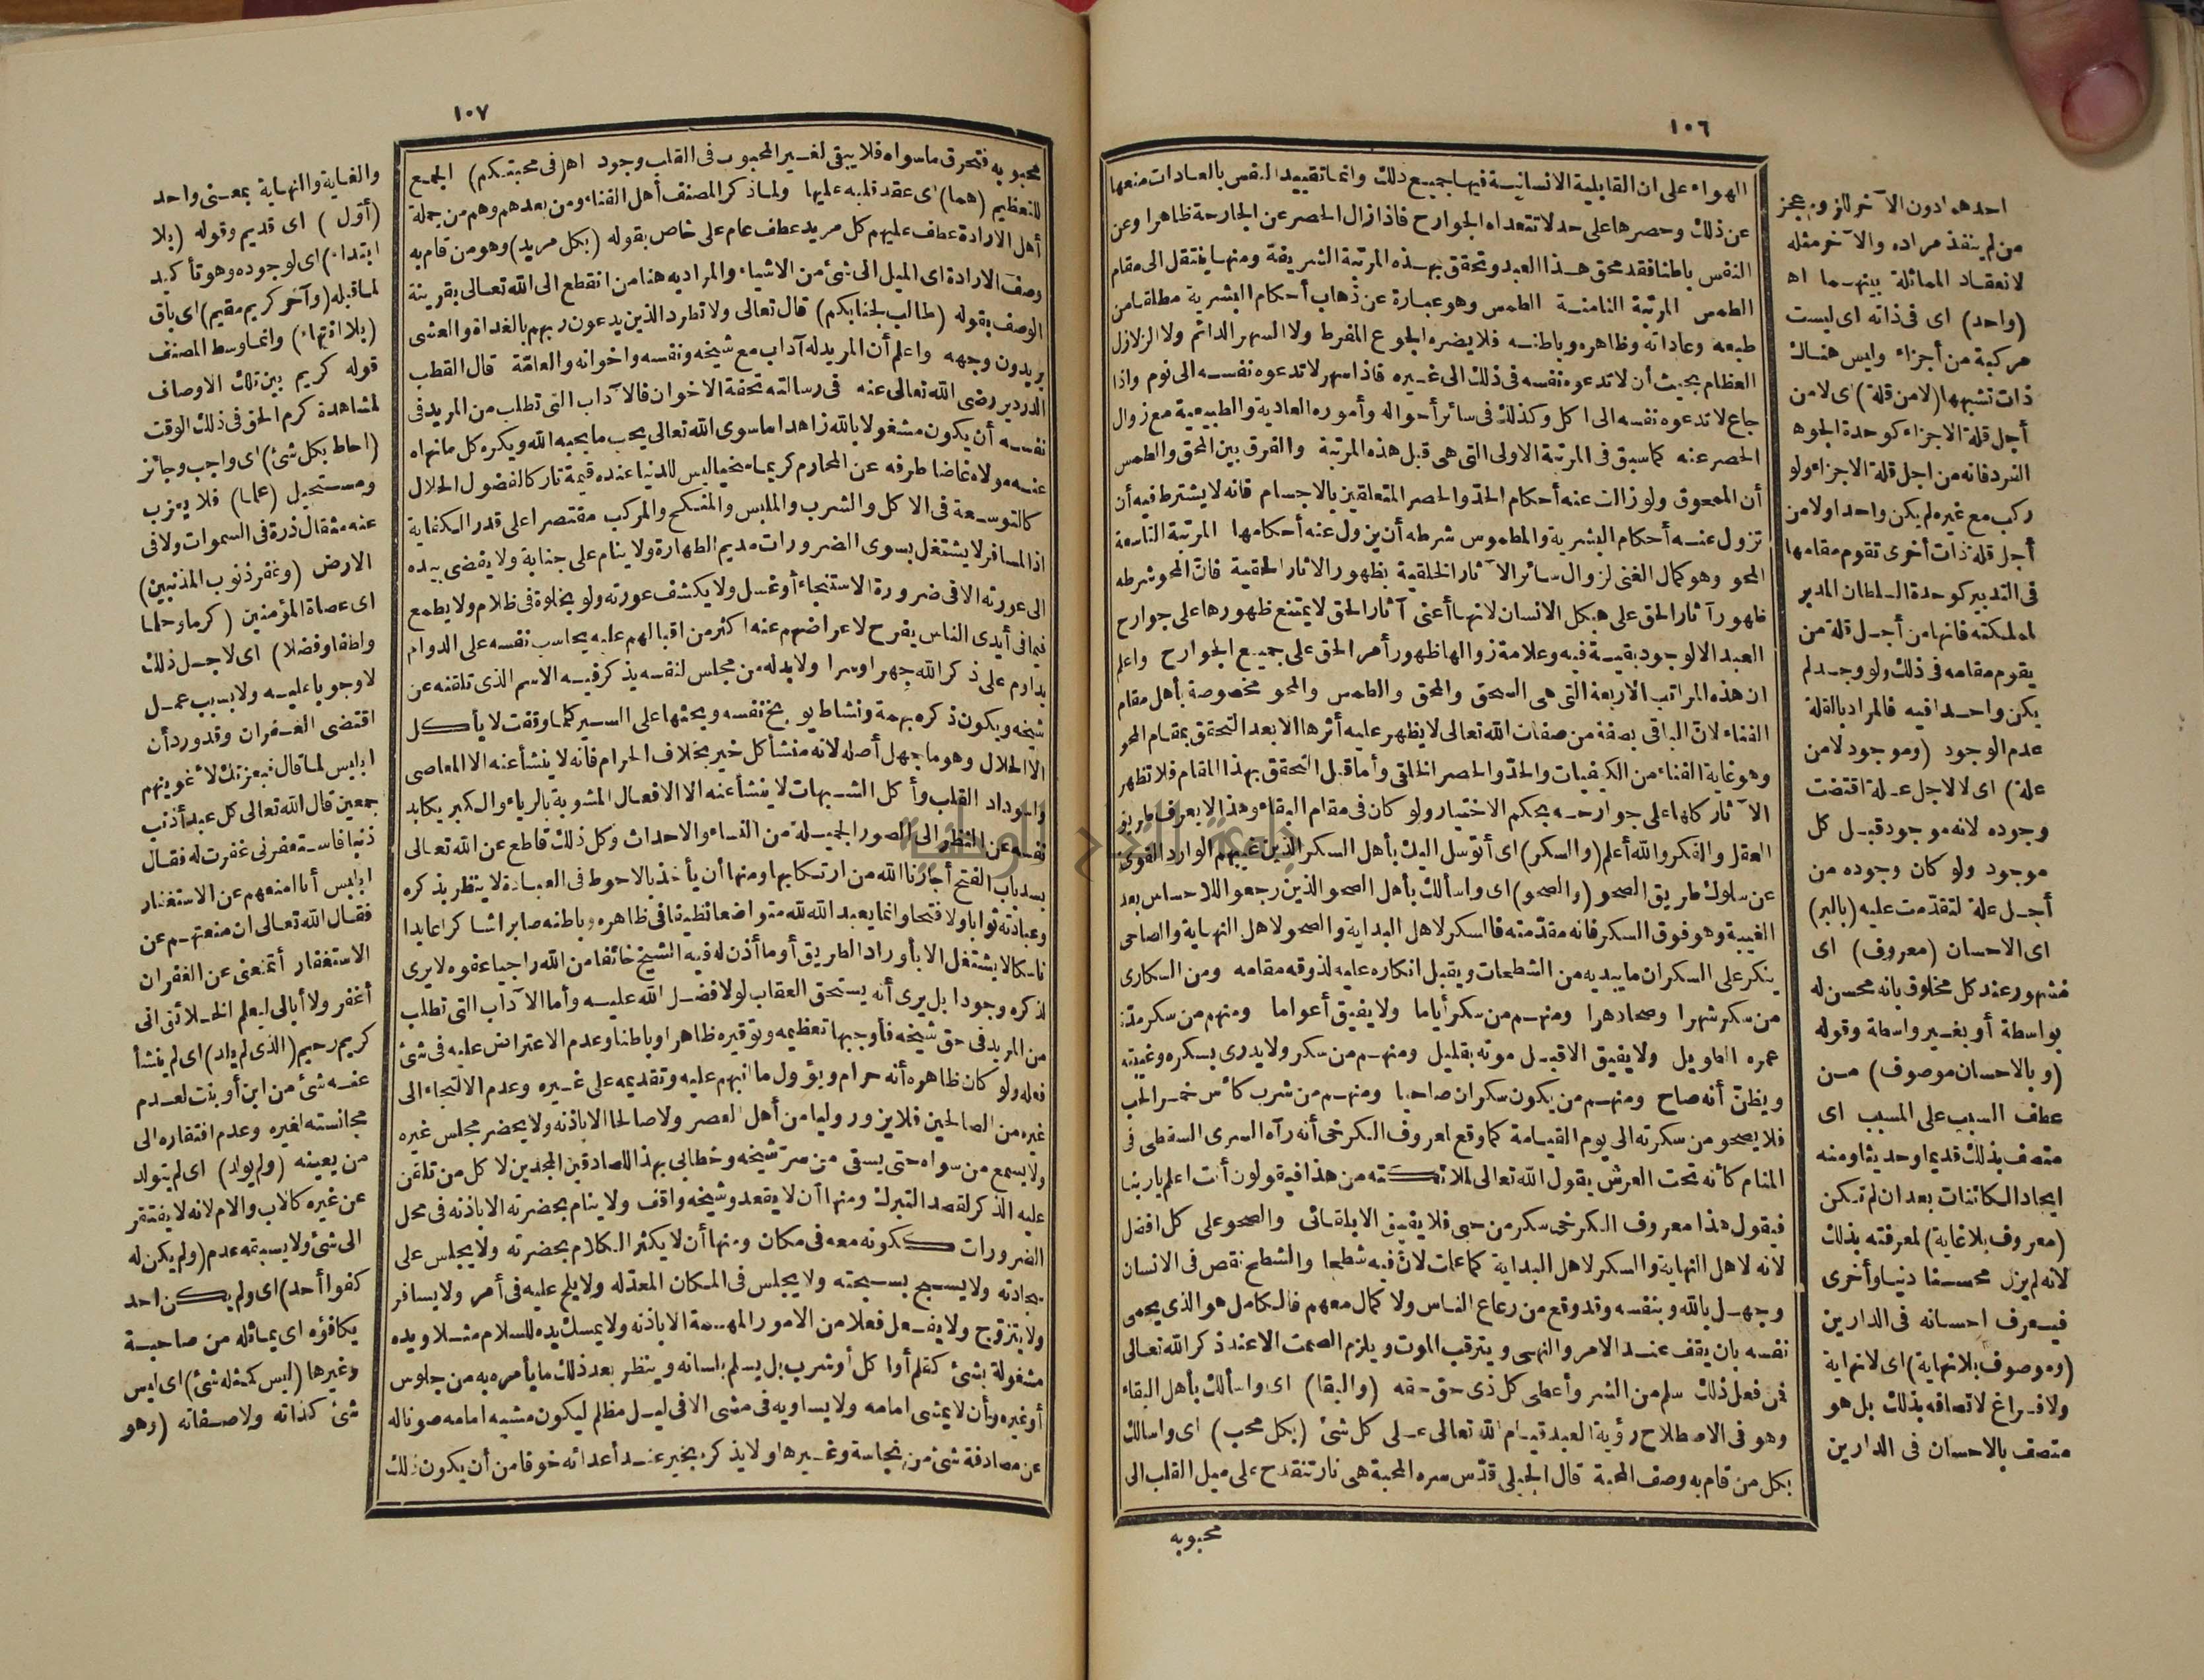 ١٠٦
الهواء على ان القابلية الانسانية فيها جميع ذلك وانما تقييد النفس بالعادات منعها
عن ذلك وحصرها على حد لا تتعداه الجوارح فاذا زال الحصر عن الجارحة ظاهرا وعن
النفس باطنا فقد محق هذا العبد وتحقق بهذه المرتبة الشريفة ومنها ينتقل الى مقام
الطمس المرتبة الثامنة الطمس وهو عبارة عن ذهاب أحكام البشرية مطلقا من
طبعه وعاداته وظاهره وباطنه فلا يضره الجوع المفرط ولا السهر الدائم ولا الزلازل
العظام بحيث أن لا تدعوه نفسه فى ذلك الى غيره فاذا سهر لا تدعوه نفسه الى نوم واذا
جاع لا تدعوه نفسه الى اكل وكذلك فى سائر أحواله وأموره العادية والطبيعية مع زوال
الحصر عنه كما سبق فى المرتبة الاولى التى هى قبل هذه المرتبة والفرق بين المحق والطمس
أن الممحوق ولو زالت عنه أحكام الحد والحصر المتعلقين بالاجسام فانه لا يشترط فيه أن
تزول عنه أحكام البشرية والمطموس شرطه أن يزول عنه أحكامها المرتبة التاسعة
المحو وهو كمال الغنى لزوال سائر الآثار الخلقية بظهور الاثار الحقية فان المحو شرطه
ظهور آثار الحق على هيكل الانسان لانها أعنى آثار الحق لا يمتنع ظهورها على جوارح
العبد الا لوجود بقية فيه وعلامة زوالها ظهور أمر الحق على جميع الجوارح واعلم
ان هذه المراتب الاربعة التى هى السحق والمحق والطمس والمحو مخصوصة بأهل مقام
الفناء لان الباقى بصفة من صفات الله تعالى لا يظهر عليه أثرها الا بعد التحقق بمقام المحو
وهو غاية الفناء من الكيفيات والحد والحصر الخلقى وأما قبل التحقق بهذا المقام فلا تظهر
الآثار كلها على جوارحه بحكم الاختيار ولو كان فى مقام البقاء وهذا لا يعرف بطريق
العقل والفكر والله أعلم (والسكر) اى أتوسل اليك بأهل السكر الذين غيبهم الوارد القوى
عن سلوك طريق الصحو (والصحو) اى واسألك بأهل الصحو الذين رجعوا للاحساس بعد
الغيبة وهو فوق السكر فانه مقدمته فالسكر لاهل البداية والصحو لاهل النهاية والصاحى
ينكر على السكران ما يبديه من الشطحات ويقبل انكاره عليه لذوقه مقامه ومن السكارى
من سكر شهرا وصحا دهرا ومنهم من سكر أياما ولا يفيق أعواما ومنهم من سكر مدة
عمره الطويل ولا يفيق الا قبيل موته بقليل ومنهم من سكر ولا يدرى بسكره وغيبته
ويظن أنه صاح ومنهم من يكون سكران صاحيا ومنهم من شرب كأس خمر الحب
فلا يصحو من سكرته الى يوم القيامة كما وقع لمعروف الكرخى أنه رآه السرى السقطى فى
المنام كأنه تحت العرش يقول الله تعالى لملائكته من هذا فيقولون أنت اعلم يا ربنا
فيقول هذا معروف الكرخى سكر من حبى فلا يفيق الا بلقائى والصحو على كل افضل
لانه لاهل النهاية والسكر لاهل البداية كما علمت لان فيه شطحا والشطح نقص فى الانسان
وجهل بالله وبنفسه وقد وقع من رعاع الناس ولا كمال معهم فالكامل هو الذى يحمى
نفسه بان يقف عند الامر والنهى ويترقب الموت ويلزم الصمت الا عند ذكر الله تعالى
فمن فعل ذلك سلم من الشر وأعطى كل ذى حق حقه (والبقا) اى واسألك بأهل البقاء
وهو فى الاصطلاح رؤية العبد قيام الله تعالى على كل شئ (بكل محب) اى واسالك
بكل من قام به وصف المحبة قال الجيلى قدس سره المحبة هى نار تنقدح على ميل القلب الى
محبوبه
احدهما دون الآخر للزوم عجز
من لم ينفذ مراده والآخر مثله
لانعقاد المماثلة بينهما اه
(واحد) اى فى ذاته اى ليست
مركبة من أجزاء وليس هناك
ذات تشبهها (لا من قلة) اى لا من
أجل قلة الاجزاء كوحدة الجوهر
الفرد فانه من اجل قلة الاجزاء ولو
ركب مع غيره لم يكن واحدا ولا من
أجل قلة ذات أخرى تقوم مقامها
فى التدبير كوحدة السلطان المدبر
لمملكته فانها من أجل قلة من
يقوم مقامه فى ذلك ولو وجد لم
يكن واحدا فيه فالمراد بالقلة
عدم الوجود (وموجود لا من
علة) اى لا لاجل علة اقتضت
وجوده لانه موجود قبل كل
موجود ولو كان وجوده من
أجل علة لتقدمت عليه (بالبر)
اى الاحسان (معروف) اى
مشهور عند كل مخلوق بانه محسن له
بواسطة أو بغير واسطة وقوله
(وبالاحسان موصوف) من
عطف السبب على المسبب اى
متصف بذلك قديما وحديثا ومنه
ايجاد الكائنات بعد ان لم تكن
(معروف بلا غاية) لمعرفته بذلك
لانه لم يزل محسنا دنيا وأخرى
فيعرف احسانه فى الدارين
(وموصوف بلا نهاية) اى لا نهاية
ولا فراغ لاتصافه بذلك بل هو
متصف بالاحسان فى الدارين
١٠٧
محبوبه فتحرق ما سواه فلا يبقى لغير المحبوب فى القلب وجود اه (فى محبتكم) الجمع
للتعظيم (هما) اى عقد قلبه عليها ولما ذكر المصنف أهل الفناء ومن بعدهم وهم من جملة
أهل الارادة عطف عليهم كل مريد عطف عام على خاص بقوله (بكل مريد) وهو من قام به
وصف الارادة اى الميل الى شئ من الاشياء والمراد به هنا من انقطع الى الله تعالى بقرينة
الوصف بقوله (طالب لجنابكم) قال تعالى ولا تطرد الذين يدعون ربهم بالغداة والعشى
يريدون وجهه واعلم أن المريد له آداب مع شيخه ونفسه واخوانه والعامة قال القطب
الدردير رضى الله تعالى عنه فى رسالته تحفة الاخوان فالآداب التى تطلب من المريد فى
نفسه أن يكون مشغولا بالله زاهدا ما سوى الله تعالى يحب ما يحبه الله ويكره كل ما نهاه
عنه مولاه غاضا طرفه عن المحارم كريما سخيا ليس للدنيا عنده قيمة تاركا لفضول الحلال
كالتوسعة فى الاكل والشرب والملبس والمنكح والمركب مقتصرا على قدر الكفاية
اذ المسافر لا يشتغل بسوى الضرورات مديم الطهارة ولا ينام على جنابة ولا يفضى بيده
الى عورته الا فى ضرورة الاستنجاء أو غسل ولا يكشف عورته ولو بخلوة فى ظلام ولا يطمع
فيما فى أيدى الناس يفرح لاعراضهم عنه اكثر من اقبالهم عليه يحاسب نفسه على الدوام
يداوم على ذكر الله جهرا وسرا ولا بد له من مجلس لنفسه يذكر فيه الاسم الذى تلقنه عن
شيخه ويكون ذكره بهمة ونشاط يوبخ نفسه ويحثها على السير كلما وقفت لا يأكل
الا الحلال وهو ما جهل أصله لانه منشأ كل خير بخلاف الحرام فانه لا ينشأ عنه الا المعاصى
واسوداد القلب وأكل الشبهات لا ينشأ عنه الا الافعال المشوبة بالرياء والكبر يكابد
نفسه عن النظر الى الصور الجميلة من النساء والاحداث وكل ذلك قاطع عن الله تعالى
يسد باب الفتح أجارنا الله من ارتكابها ومنها أن يأخذ بالاحوط فى العبادة لا ينتظر بذكره
وعبادته ثوابا ولا فتحا وانما يعبد الله لله متواضعا نظيفا فى ظاهره وباطنه صابرا شاكرا عابدا
ناسكا لا يشتغل الا بأوراد الطريق أو ما أذن له فيه الشيخ خائفا من الله راجيا عفوه لا يرى
لذكره وجودا بل يرى أنه يستحق العقاب لولا فضل الله عليه وأما الآداب التى تطلب
من المريد فى حق شيخه فأوجبها تعظيمه وتوقيره ظاهرا وباطنا وعدم الاعتراض عليه فى شئ
فعله ولو كان ظاهره أنه حرام ويؤول ما انبهم عليه وتقديمه على غيره وعدم الالتجاء الى
غيره من الصالحين فلا يزور وليا من أهل العصر ولا صالحا الا باذنه ولا يحضر مجلس غيره
ولا يسمع من سواه حتى يسقى من سر شيخه وخطابى بهذا للصادقين المجدين لا كل من تلقن
عليه الذكر لقصد التبرك ومنها أن لا يقعد وشيخه واقف ولا ينام بحضرته الا باذنه فى محل
الضرورات ككونه معه فى مكان ومنها أن لا يكثر الكلام بحضرته ولا يجلس على
سجادته ولا يسبح بسبحته ولا يجلس فى المكان المعد له ولا يلح عليه فى أمر ولا يسافر
ولا يتزوج ولا يفعل فعلا من الامور المهمة الا باذنه ولا يمسك يده للسلام مثلا ويده
مشغولة بشئ كقلم أو اكل أو شرب بل يسلم بلسانه وينتظر بعد ذلك ما يأمره به من جلوس
أو غيره وأن لا يمشى امامه ولا يساويه فى مشى الا فى ليل مظلم ليكون مشيه امامه صونا له
عن مصادفة شئ من نجاسة وغيرها ولا يذكره بخير عند أعدائه خوفا من أن يكون ذلك
والغاية والنهاية بمعنى واحد
(أول) اى قديم وقوله (بلا
ابتداء) اى لوجوده وهو تأكيد
لما قبله (وآخر كريم مقيم) اى باق
(بلا انتهاء) وانما وسط المصنف
قوله كريم بين تلك الاوصاف
لمشاهدة كرم الحق فى ذلك الوقت
(احاط بكل شئ) اى واجب وجائز
ومستحيل (علما) فلا يعزب
عنه مثقال ذرة فى السموات ولا فى
الارض (وغفر ذنوب المذنبين)
اى عصاة المؤمنين (كرما وحلما
ولطفا وفضلا) اى لاجل ذلك
لا وجوبا عليه ولا بسبب عمل
اقتضى الغفران وقد ورد أن
ابليس لما قال فبعزتك لأغوينهم
جمعين قال الله تعالى كل عبد أذنب
ذنبا فاستغفرنى غفرت له فقال
ابليس أنا امنعهم عن الاستغفار
فقال الله تعالى ان منعتهم عن
الاستغفار أتمنعنى عن الغفران
أغفر ولا أبالى ليعلم الخلائق انى
كريم رحيم (الذى لم يلد) اى لم ينشأ
عنه شئ من ابن أو بنت لعدم
مجانسته لغيره وعدم افتقاره الى
من يعينه (ولم يولد) اى لم يتولد
عن غيره كالاب والام لانه لا يفتقر
الى شئ ولا يسبقه عدم (ولم يكن له
كفوا أحد) اى ولم يكن احد
يكافؤه اى يماثله من صاحبة
وغيرها (ليس كمثله شئ) اى ليس
شئ كذاته ولا صفاته (وهو